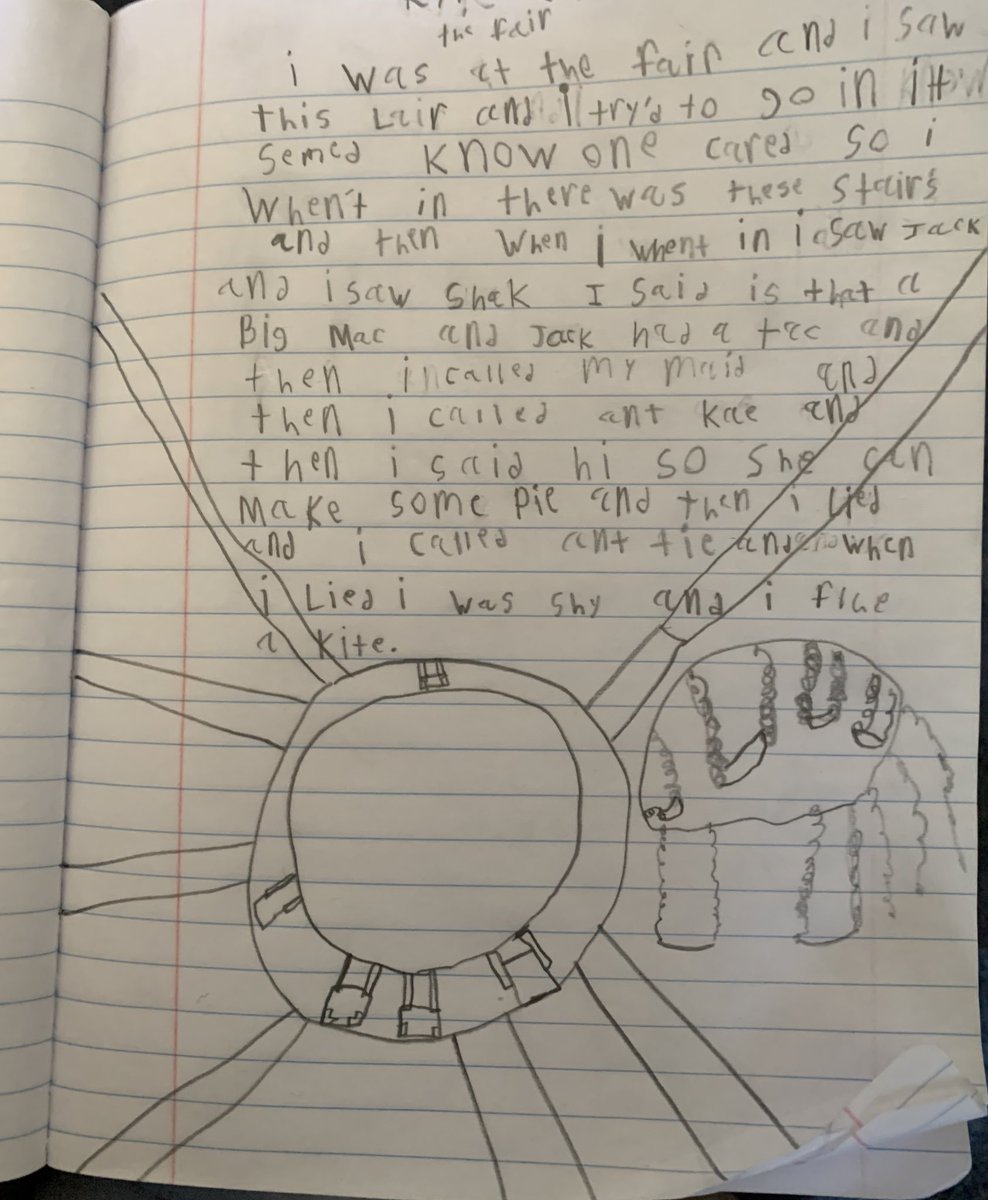 the fair
i was at the fair and i saw
this Lair and i try'd to go in it
semed know one cared so i
when't in there was these stair's
and then when i whent in i saw Jack
and i saw Shak I said is that a
Big Mac and Jack had a tac and
then i called my maid and
then i called ant kae and
then i said hi so she can
make some pie and then i lied
and i called ant tie and when
i Lied i was shy and i flue
a kite.